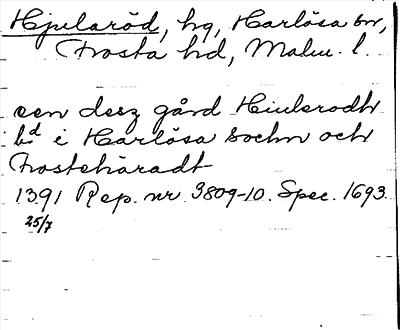 Hjularöd, hg, Harlösa sn,
Frosta hd, Malm. l.
een desz gård Hiulerodh
bd i Harlösa sochn och
Frosteháradt
1391 Rep. nr 3809-10. Spec. 1693.
25/7